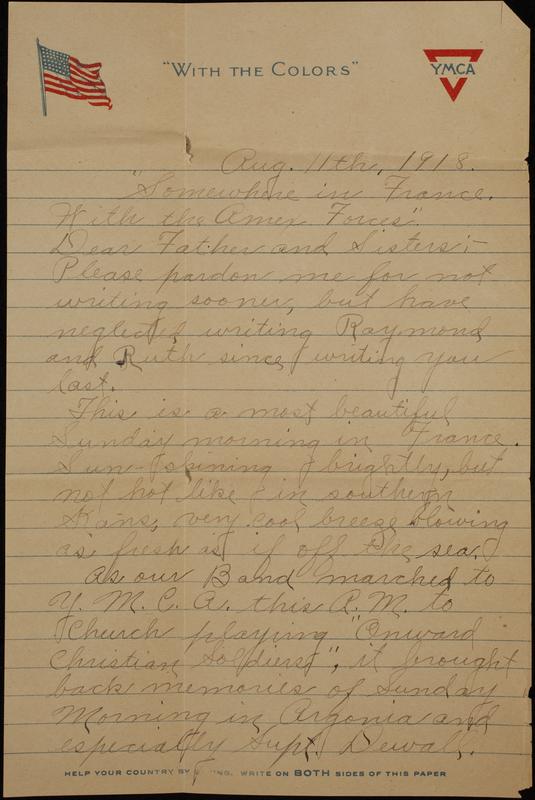 "WITH THE COLORS"
YMCA
Aug. 11th, 1918.
"Somewhere in France.
With the Amex Forces".
Dear Father and Sisters;-
Please pardon me for not
writing sooner, but have
neglected writing Raymond
and Ruth since writing you
last.
This is a most beautiful
Sunday morning in France.
Sun-shining brightly, but
not hot like in southern
Kans, very cool breeze blowing
as fresh as if off the sea.
As our Band marched to
Y. M. C. A. this A. M. to
Church playing "Onward
Christian Soldiers", it brought
back memories of Sunday
Morning in Argonia and
especially Supt. Dewall.
HELP YOUR COUNTRY BY WRITE ON BOTH SIDES OF THIS PAPER